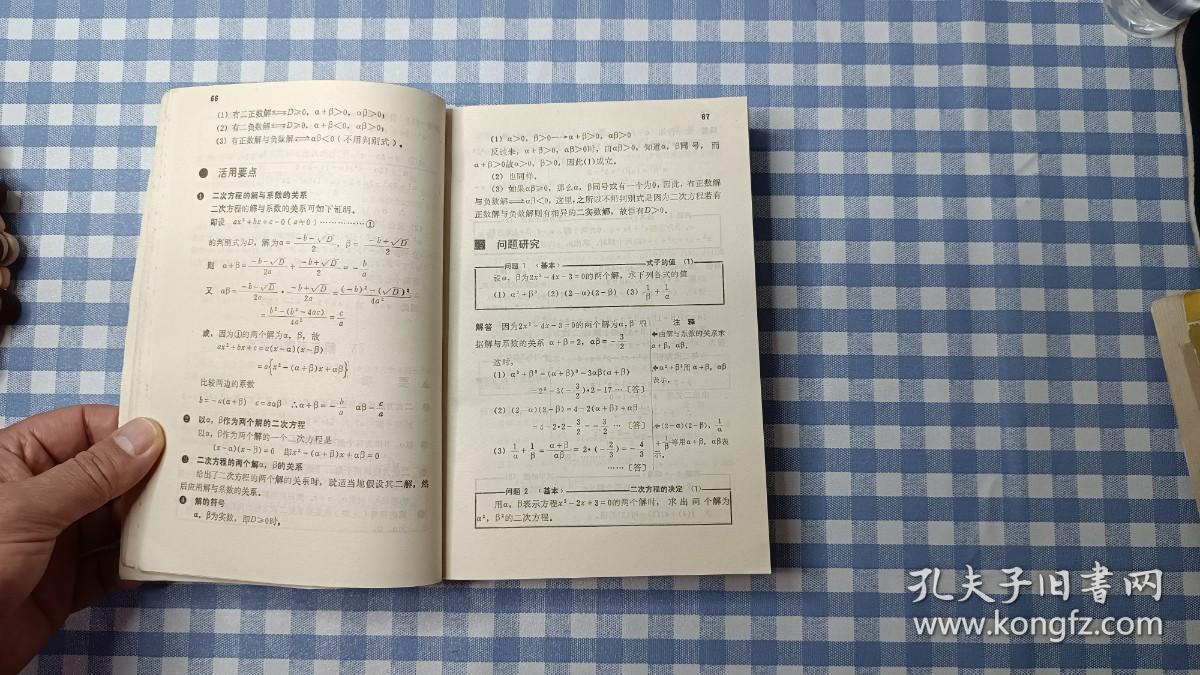 66
(1) 有二正数解⟺D≥0, α+β>0, αβ>0;
(2) 有二负数解⟺D≥0, α+β<0, αβ>0;
(3) 有正数解与负数解⟺αβ<0 (不用判别式)。
活用要点
❶ 二次方程的解与系数的关系
二次方程的解与系数的关系可如下证明。
即设 ax²+bx+c=0 (a≒0) ……………①
的判别式为D, 解为α=(-b-√D)/2, β=(-b+√D)/2
则 α+β=(-b-√D)/2a + (-b+√D)/2a = -b/a
又 αβ=(-b-√D)/2a · (-b+√D)/2a = ((-b)²-(√D)²)/4a²
=(b²-(b²-4ac))/4a² = c/a
或, 因为①的两个解为α, β, 故
ax²+bx+c=a(x-α)(x-β)
=a{x²-(α+β)x+αβ}
比较两边的系数
b=-a(α+β) c=aαβ ∴α+β=-b/a αβ=c/a
❷ 以α, β作为两个解的二次方程
以α, β作为两个解的一个二次方程是
(x-α)(x-β)=0 即x²-(α+β)x+αβ=0
❸ 二次方程的两个解α, β的关系
给出了二次方程的两个解的关系时, 就适当地假设其二解, 然
后应用解与系数的关系。
❹ 解的符号
α, β为实数, 即D≥0时,
67
(1) α>0, β>0→α+β>0, αβ>0
反过来, α+β>0, αβ>0时, 由αβ>0, 知道α, β同号, 而
α+β>0故α>0, β>0, 因此(1)成立。
(2) 也同样。
(3) 如果αβ≥0, 那么α, β同号或有一个为0, 因此, 有正数解
与负数解⟺αβ<0, 这里, 之所以不用判别式是因为二次方程若有
正数解与负数解则有相异的二实数解, 故恒有D>0。
问题研究
问题 1 (基本) 式子的值 (1)
设α, β为2x²-4x-3=0的两个解, 求下列各式的值
(1) α³+β³ (2) (2-α)(2-β) (3) 1/β+1/α
解答 因为2x²-4x-3=0的两个解为α, β 根
据解与系数的关系 α+β=2, αβ=-3/2
这时,
(1) α³+β³=(α+β)³-3αβ(α+β)
=2³-3(-3/2)·2=17… [答]
(2) (2-α)(2-β)=4-2(α+β)+αβ
=4-2·2-3/2=-3/2… [答]
(3) 1/α+1/β=(α+β)/αβ=2·(-2/3)=-4/3
…… [答]
注 释
⇐由解与系数的关系求
α+β, αβ.
⇐α³+β³用α+β, αβ
表示。
⇐(2-α)(2-β), 1/α
+1/β等用α+β, αβ表
示。
问题 2 (基本) 二次方程的决定 (1)
用α, β表示方程x²-2x+3=0的两个解时, 求出两个解为
α², β²的二次方程。
孔夫子旧书网
www.kongfz.com